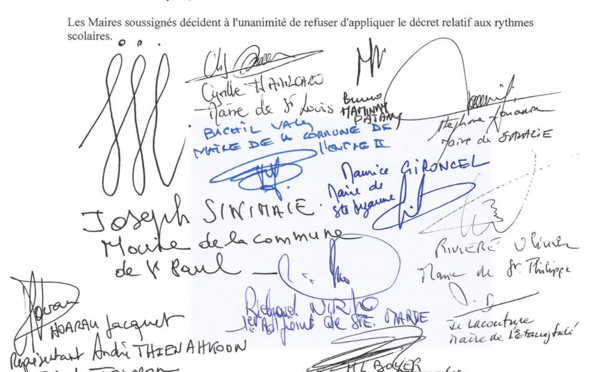 Les Maires soussignés décident à l'unanimité de refuser d'appliquer le décret relatif aux rythmes
scolaires.
Cyrille HAMILCARO
Maire de St Louis
Bruno
MAMINDY
PAJANY
Maire de
BACHIL VALY
MAIRE DE LA COMMUNE DE
L'ENTRE II
Maurice GIRONCEL
Maire de
Ste Suzanne
Joseph SINIMALE
Maire de la commune
de St Paul
RIVIERE Olivier
Maire de St Philippe
Richard NIRLO
1er Adjoint de STE. MARIE
HOARAU Jacquet
Représentant André THIEN AH KOON
Lacouture
Maire de l'Etang Salé
ML BOYER